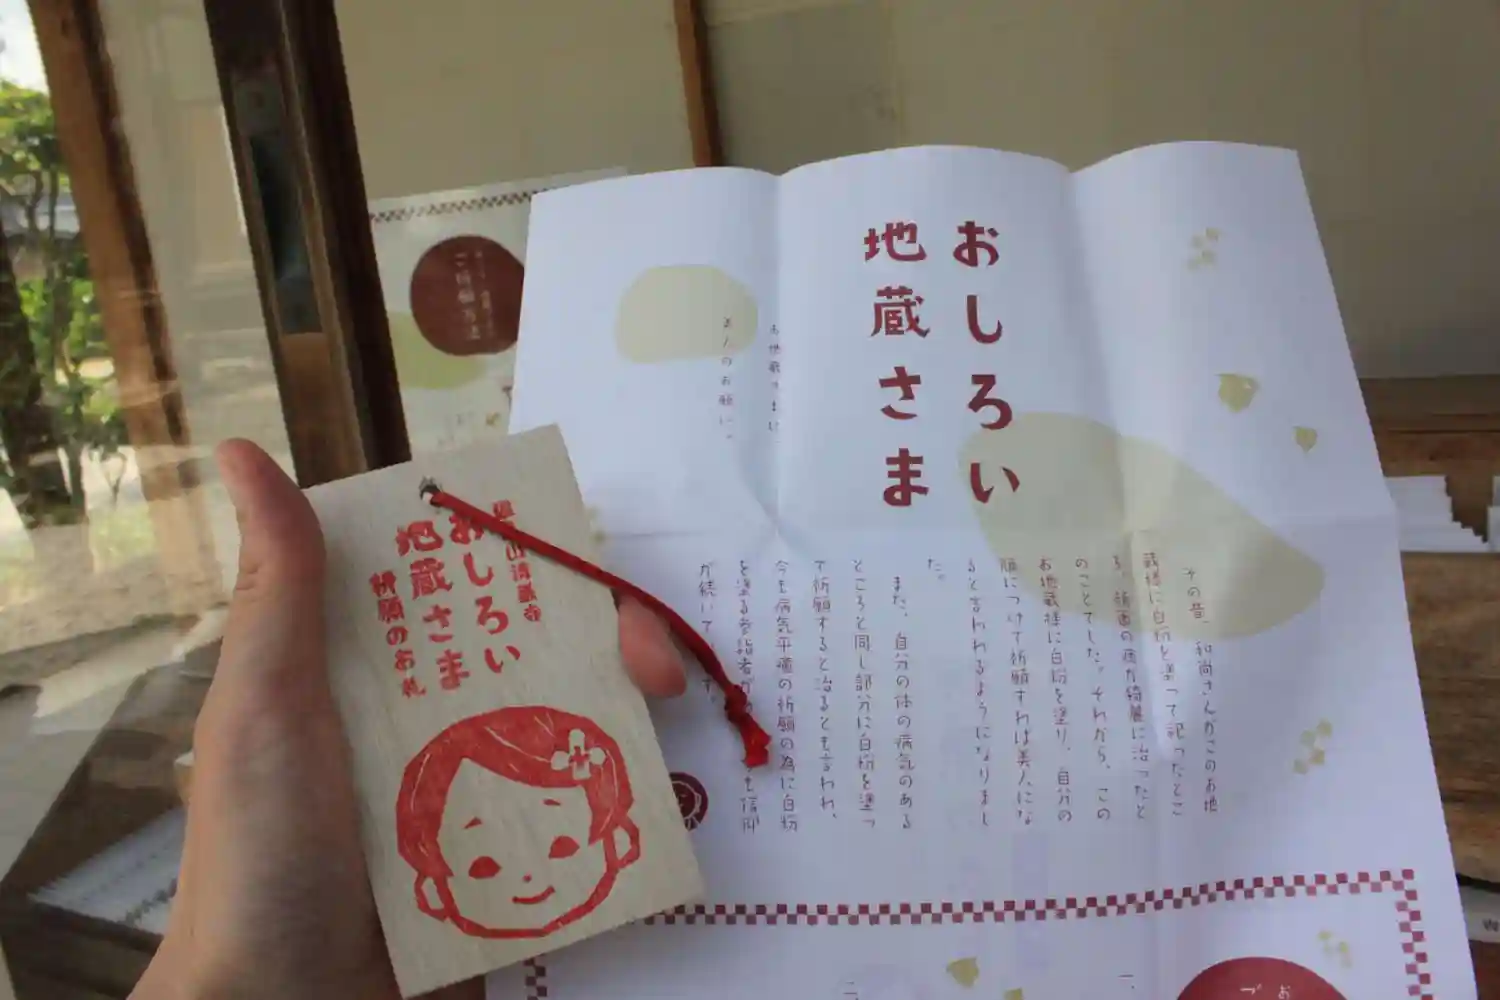 おしろい
地蔵さま
お地蔵さまに、
美人のお願い。
その昔、和尚さんがこのお地
蔵様に白粉を塗って祀ったとこ
ろ、顔面の痣が綺麗に治ったと
のことでした。それから、この
お地蔵様に白粉を塗り、自分の
顔につけて祈願すれば美人にな
ると言われるようになりまし
た。
また、自分の体の病気のある
ところと同じ部分に白粉を塗っ
て祈願すると治るとも言われ、
今も病気平癒の祈願の為に白粉
を塗る参詣者が も信仰
が続いて す。
山清蔵寺
おしろい
地蔵さま
祈願のお札
ご祈願方法